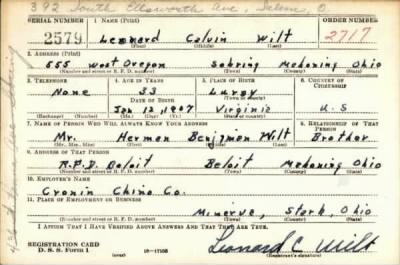 392 South Ellsworth Ave, Salem, O.
SERIAL NUMBER 1. NAME (Print) ORDER NUMBER
2579 Leonard Calvin Wilt 2717
(First) (Middle) (Last)
2. ADDRESS (Print)
555 West Oregon Sebring Mahoning Ohio
(Number and street or R. F. D. number) (Town) (County) (State)
3. TELEPHONE 4. AGE IN YEARS 5. PLACE OF BIRTH 6. COUNTRY OF CITIZENSHIP
None 33 Luray
DATE OF BIRTH (Town or county)
Jan 12, 1907 Virginia U.S
(Exchange) (Number) (Mo.) (Day) (Yr.) (State or country)
7. NAME OF PERSON WHO WILL ALWAYS KNOW YOUR ADDRESS 8. RELATIONSHIP OF THAT PERSON
Mr. Herman Benjiman Wilt Brother
(Mr., Mrs., Miss) (First) (Middle) (Last)
9. ADDRESS OF THAT PERSON
R.F.D. Beloit Beloit Mahoning Ohio
(Number and street or R. F. D. number) (Town) (County) (State)
10. EMPLOYER'S NAME
Cronin China Co.
11. PLACE OF EMPLOYMENT OR BUSINESS
Minerva, Stark, Ohio
(Number and street or R. F. D. number) (Town) (County) (State)
I AFFIRM THAT I HAVE VERIFIED ABOVE ANSWERS AND THAT THEY ARE TRUE.
REGISTRATION CARD
D. S. S. Form 1 16-17105 Leonard C. Wilt
(Registrant's signature)